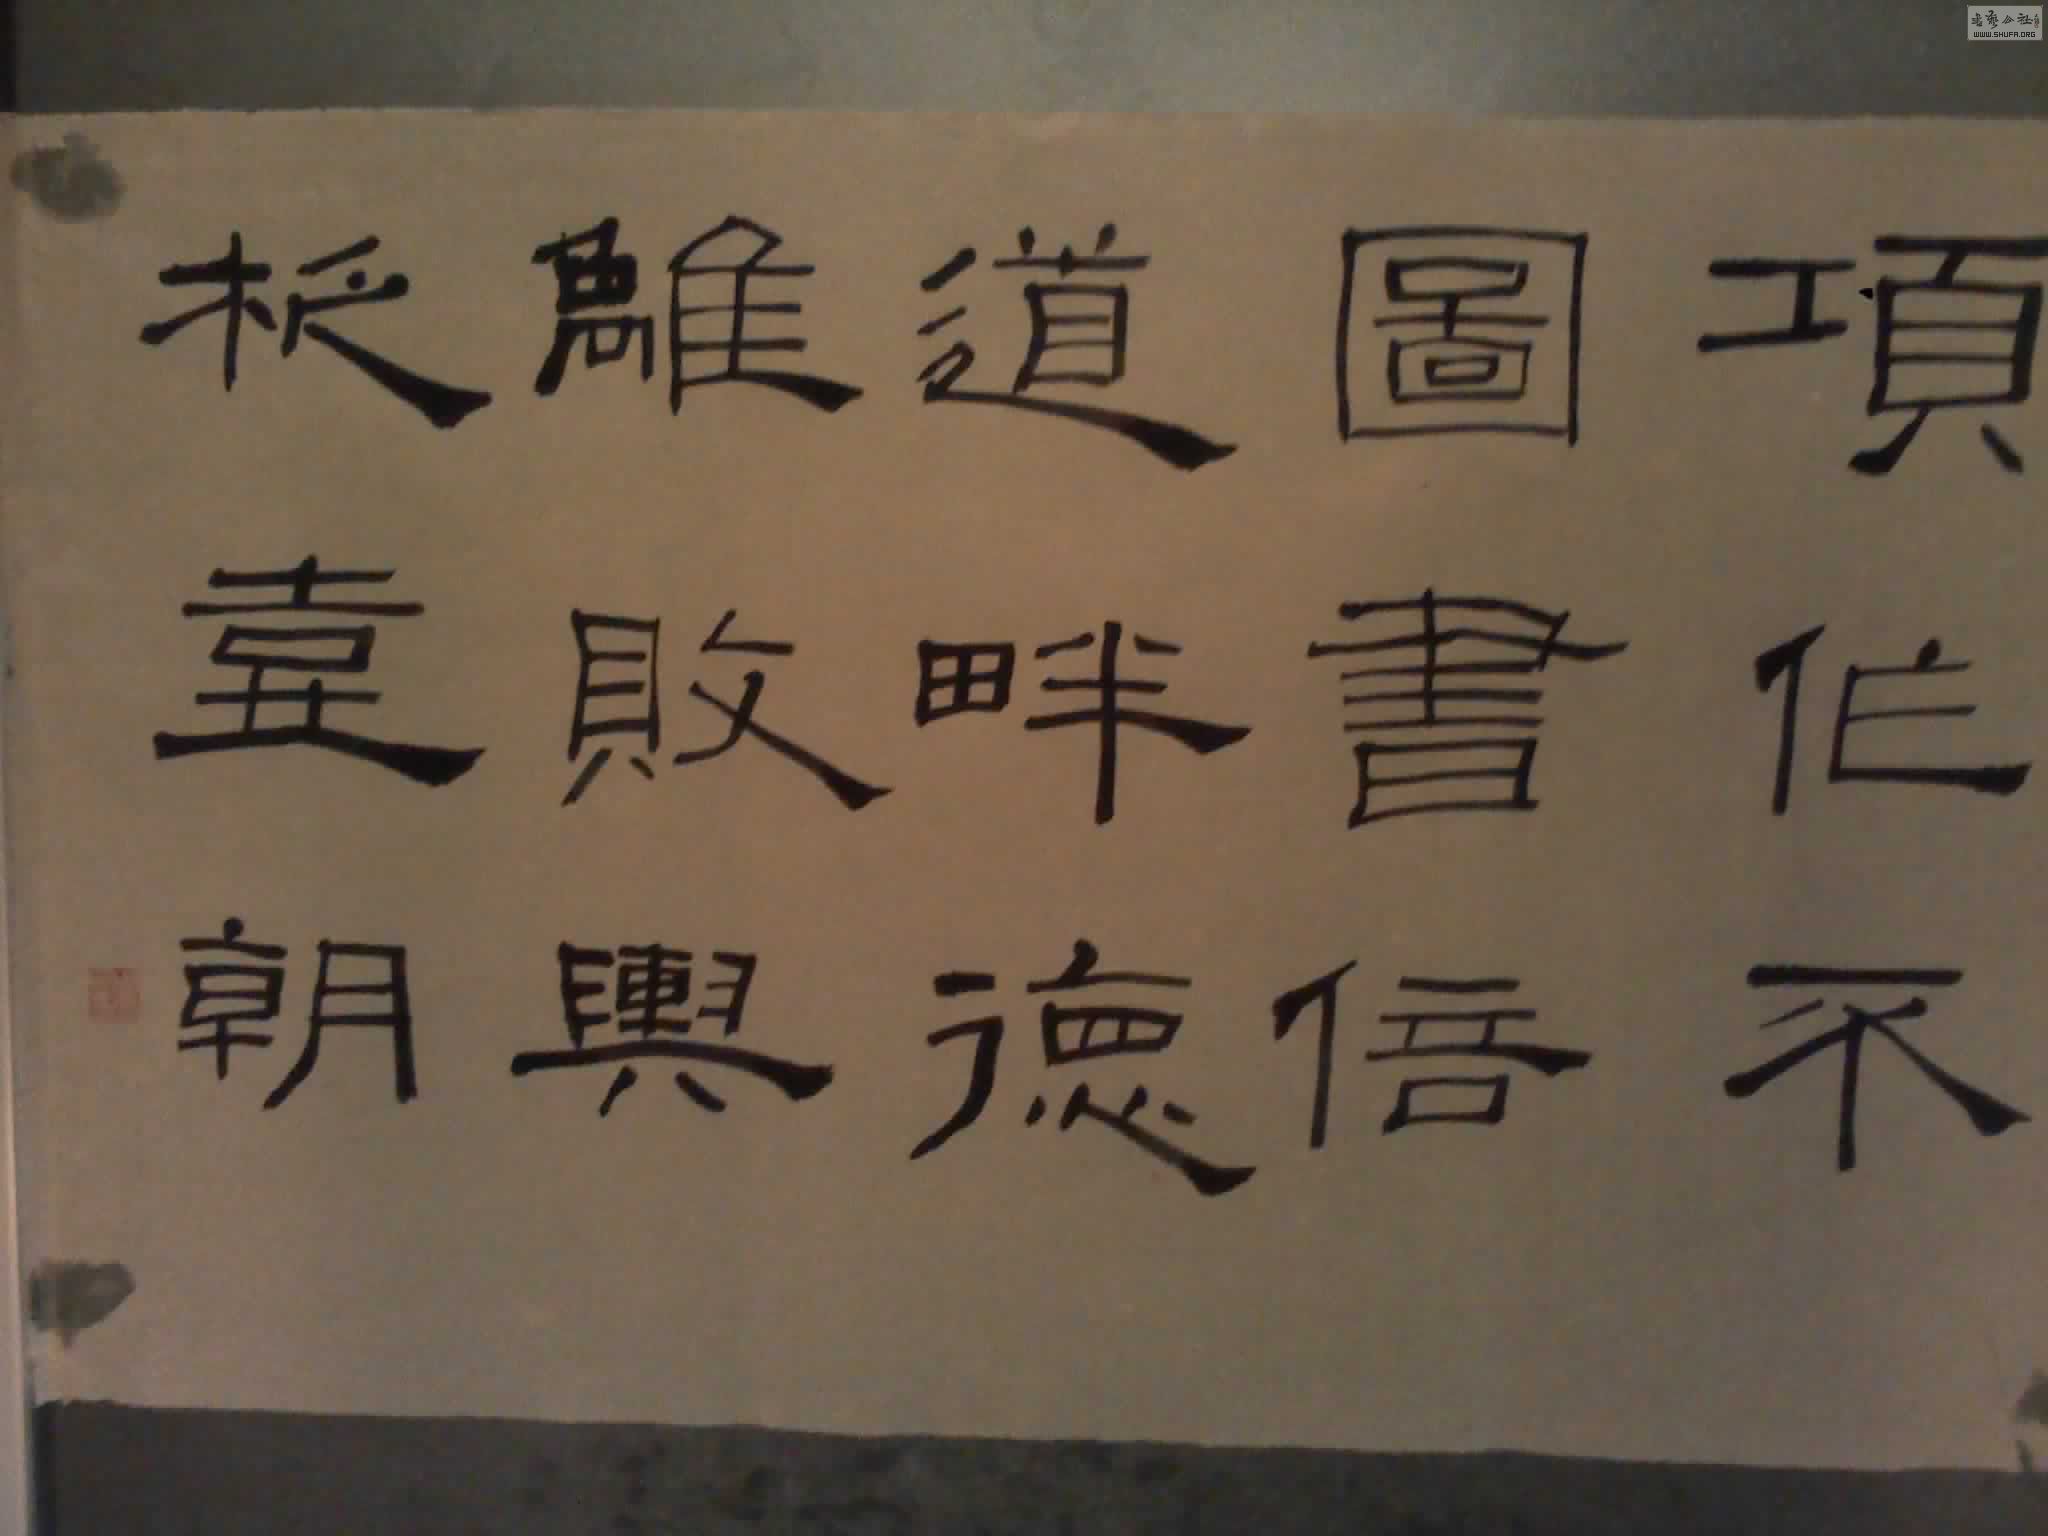 項作不
圖書倍
道畔德
離敗輿
朝
書藝公社
WWW.SHUFA.ORG